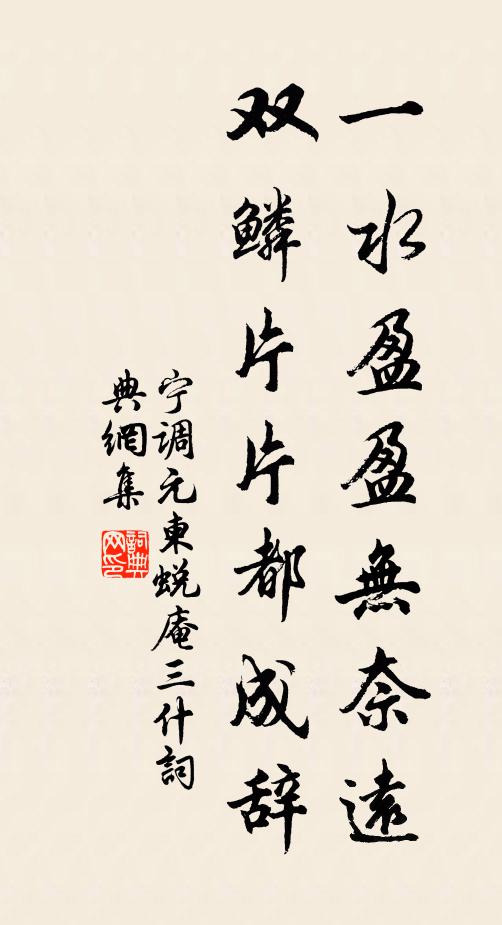 一水盈盈無奈遠
双鱗片片都成辞
宁调元東蜕庵三什詞
典網集
詞典网印